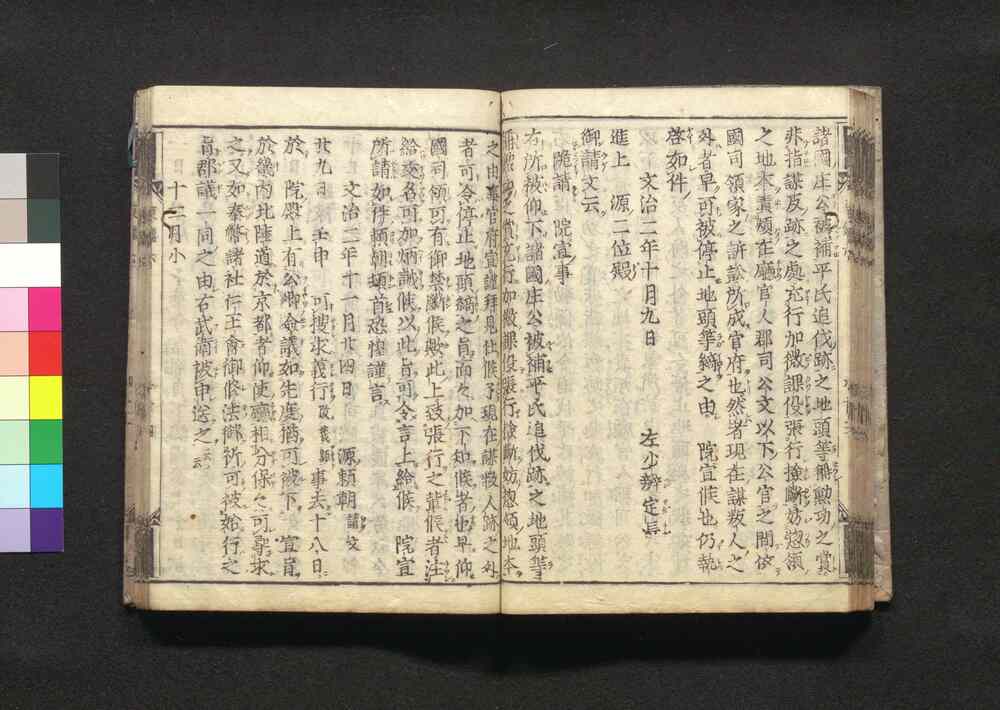 諸國庄公被補平氏追伐跡之地頭等稱勳功之賞
非指謀反跡之處充行加徵課役張行撿斷妨惣領
之地本責煩在廳官人郡司公文以下公官之間依
國司領家之訴訟所成官府也然者現在謀叛人之
外者早可被停止地頭等綺之由 院宣候也仍執
啓如件
文治二年十月九日 左少辨定長
進上 源二位殿
御請文云
跪請 院宣事
右所被仰下諸國庄公被補平氏追伐跡之地頭等
稱勳功之賞充行加徵課役張行撿斷妨惣領地本
之由官府宣謹拜見仕候了現在謀叛人跡之外
者可令停止地頭綺之旨面々加下知候者也早仰
國司領可有御禁斷候歟此上致張行之輩候者注
給交名可加炳誡候以此旨可令言上給候 院宣
所請如件賴朝頓首恐惶謹言
文治二年十一月廿四日 源賴朝 請文
廿九日 壬申 可搜求義行改義顯事去十八日
於 院殿上有公卿僉議如先度猶可被下 宣旨
於畿內北陸道於京都者仰使廳相分保々可尋求
之又如奉幣諸社仁王會御修法御祈可被始行之
旨群議一同之由右武衛被申送之云云
十二月小